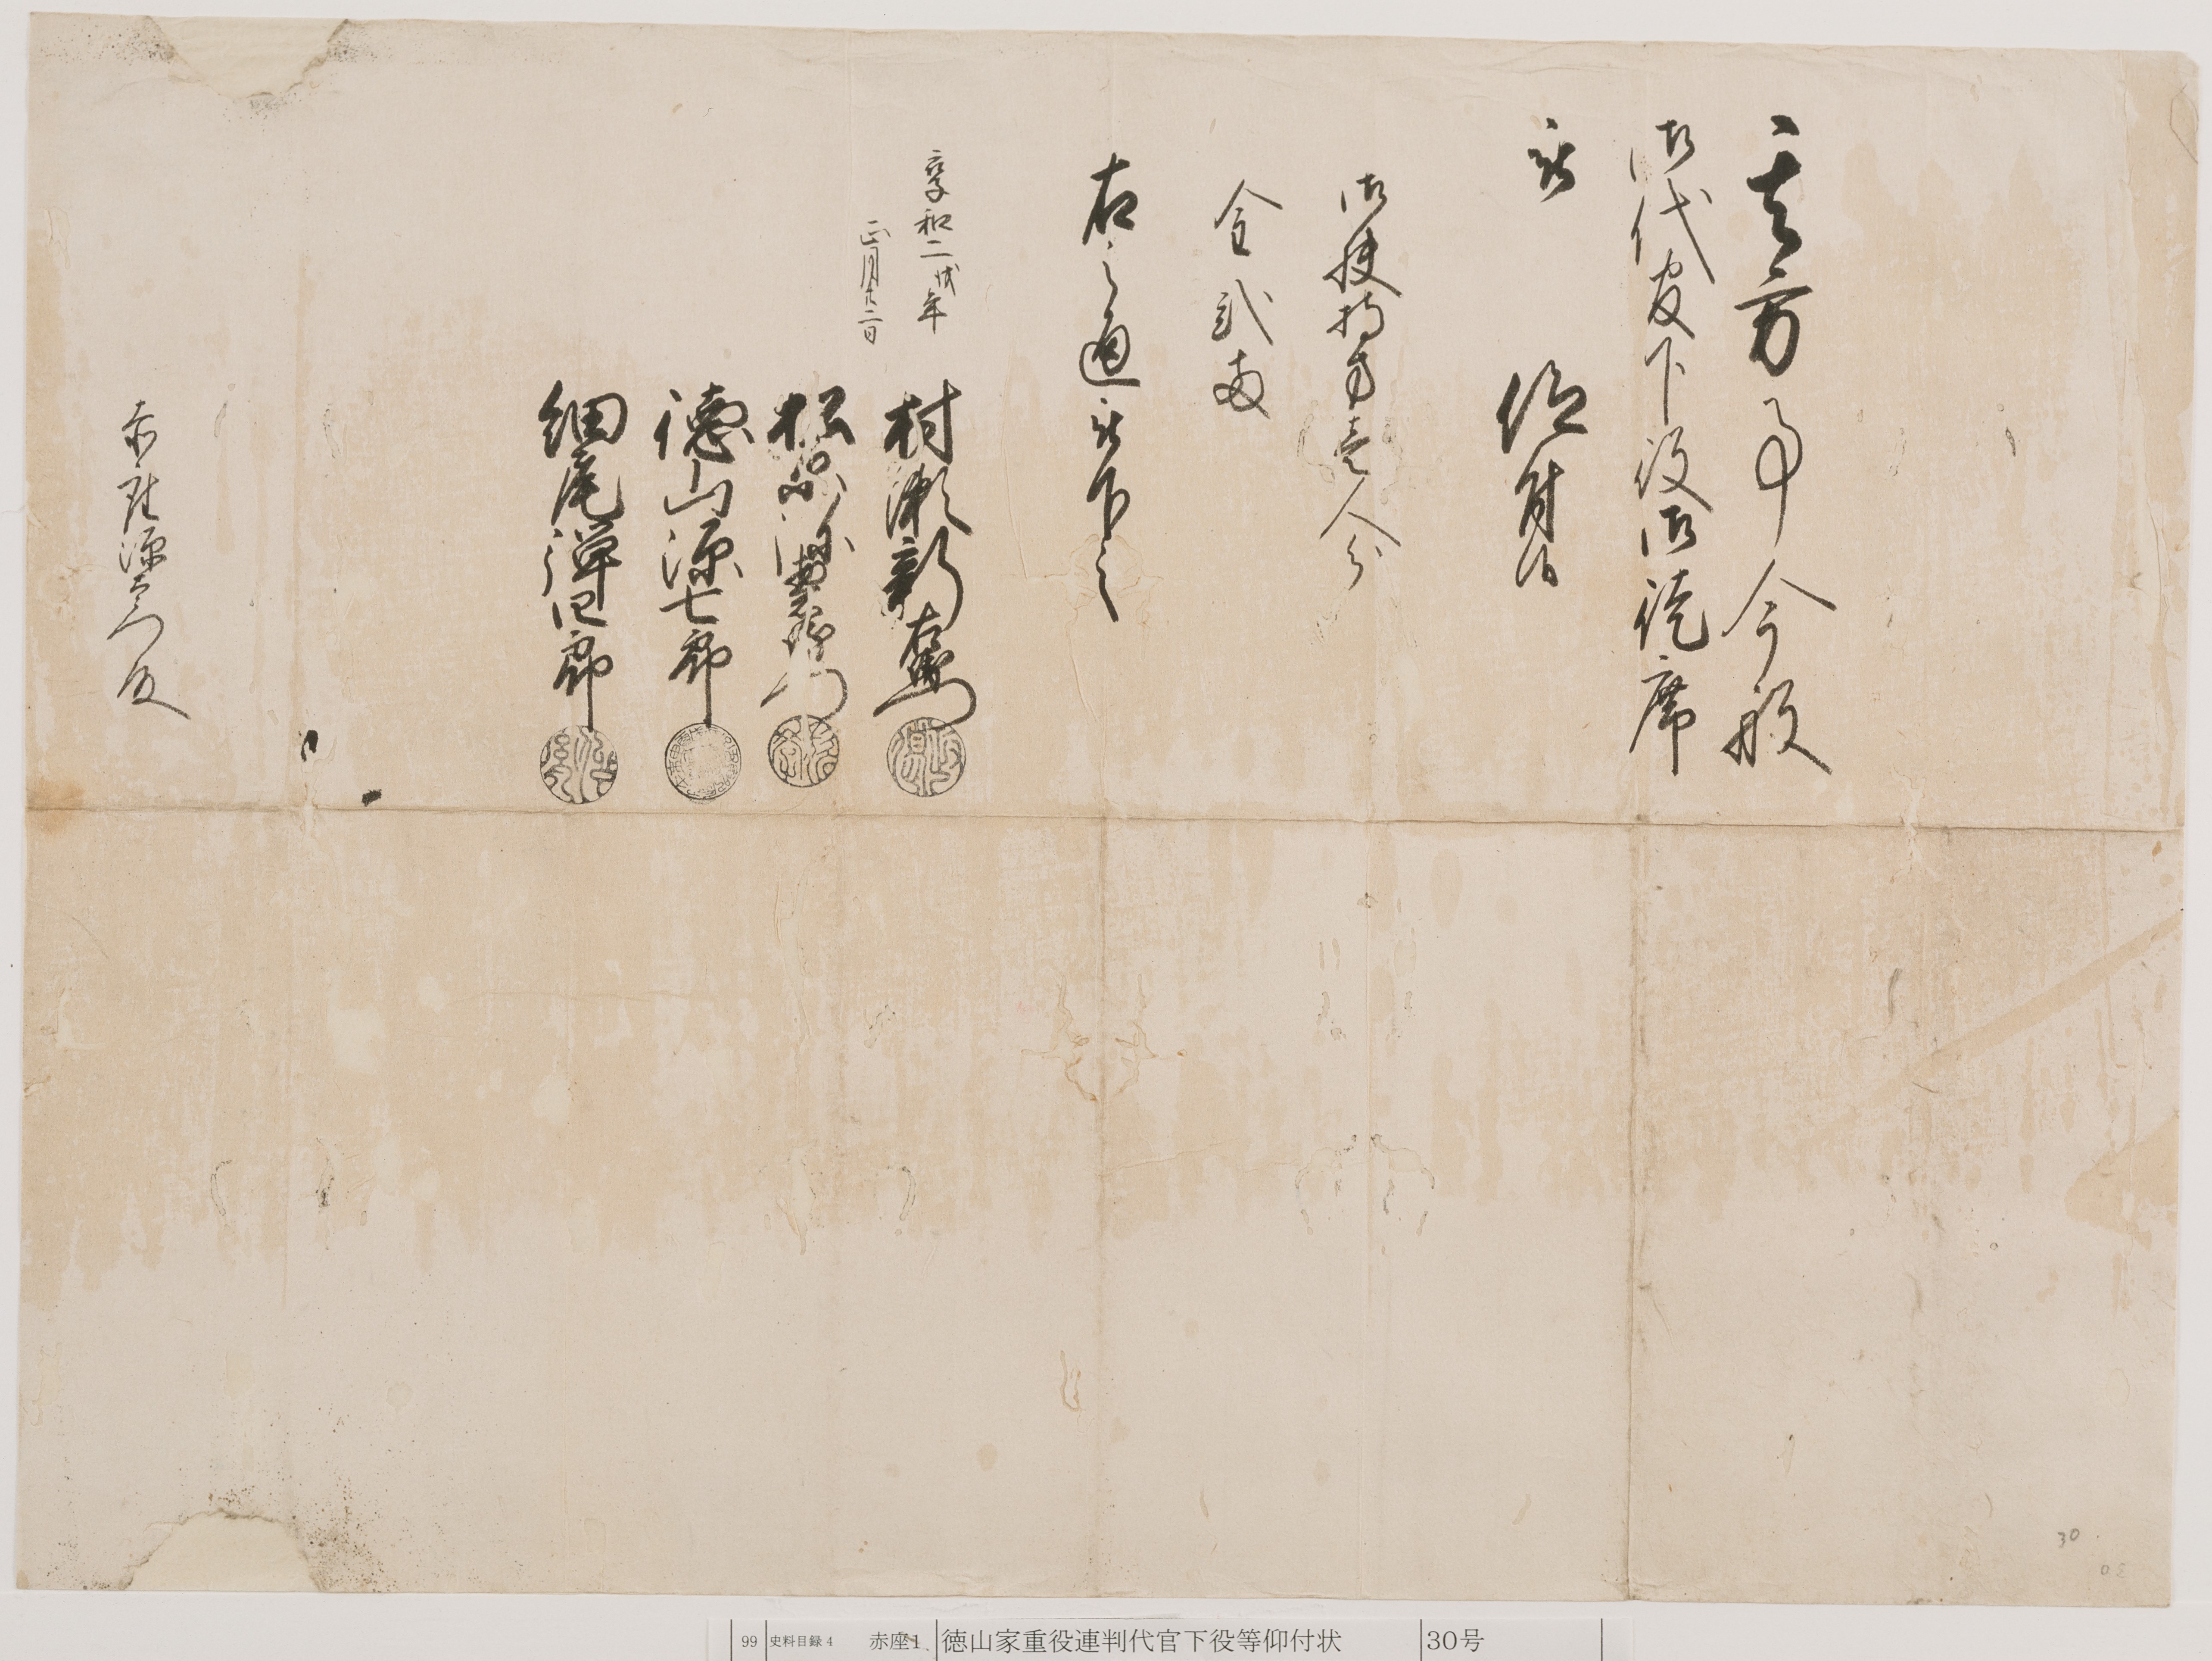 一其方事今般
御代官下役御徒席
被　仰付候
御扶持方壱人分
金弐両
右之通被下之
享和二戌年
正月十二日
村瀬新右衛門
松原
徳山源七郎
細尾弾四郎
赤座源左衛門殿
30
99 史料目録4 赤座1 徳山家重役連判代官下役等仰付状 30号